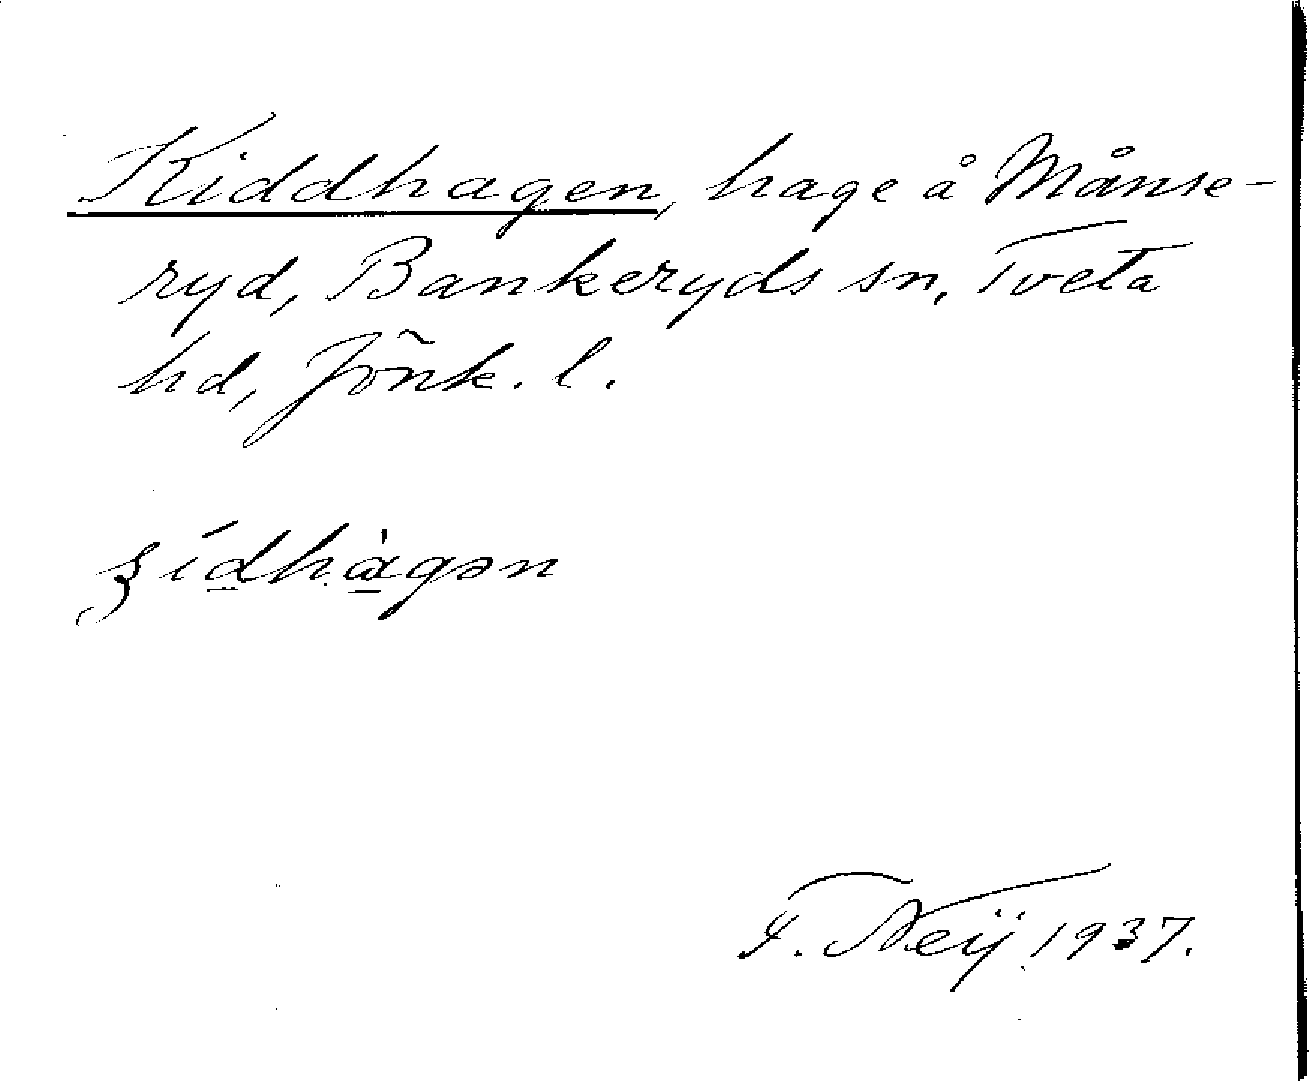 Kiddhagen, hage å Månse-
ryd, Bankeryds sn, Tveta
hd, Jönk. l.
ʒídhàgən
F. Neij 1937.